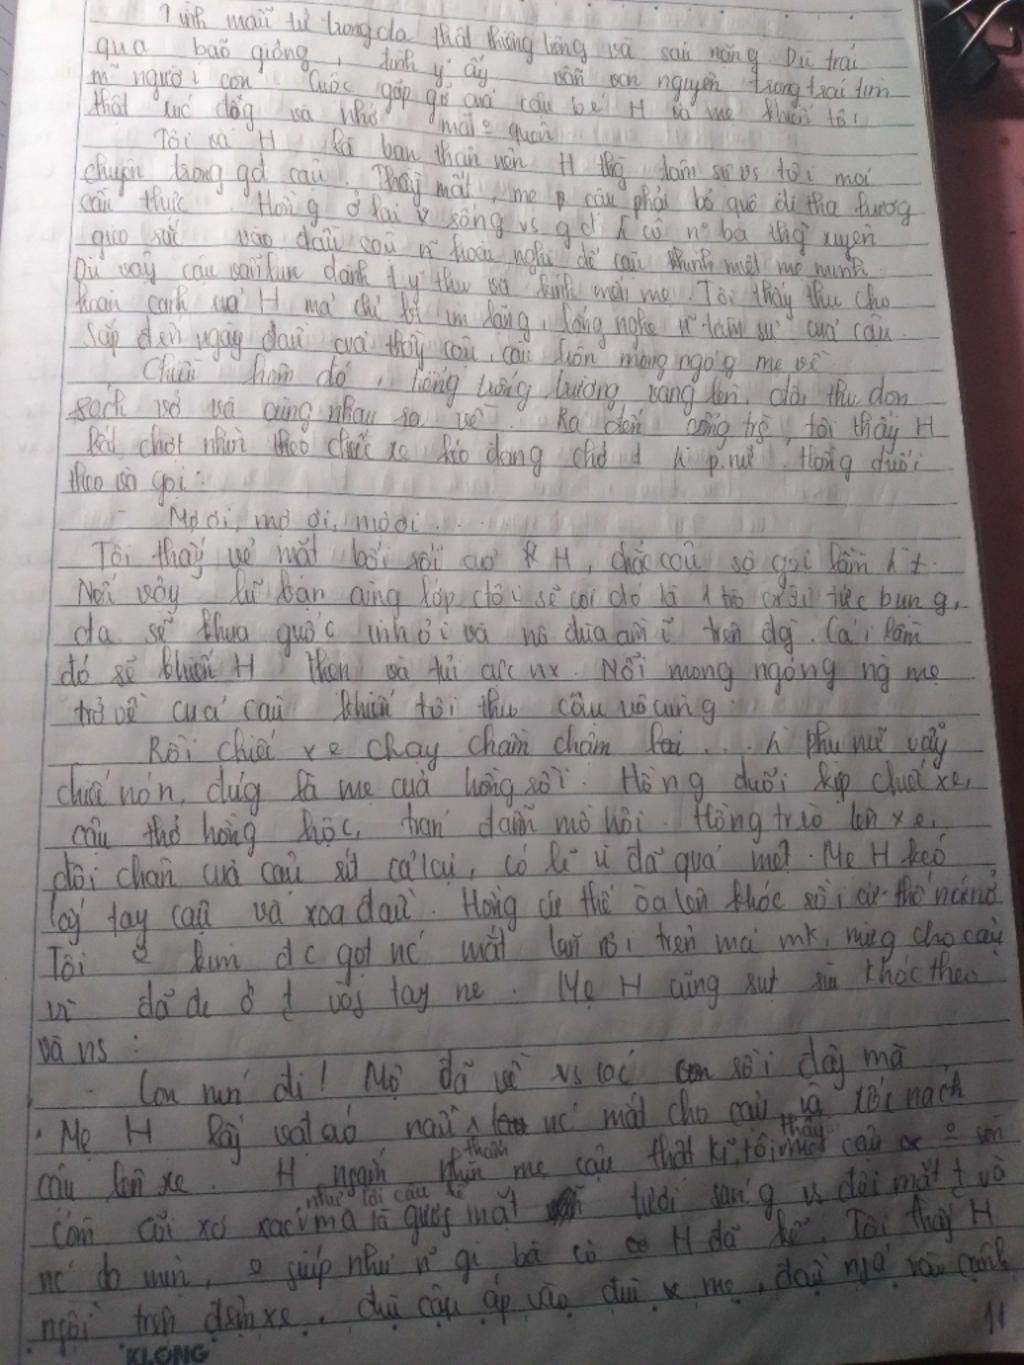 Tình mẫu tử trong da thật thiêng liêng và sâu nặng Dù trải
qua bao giông, tình y' ấy vẫn vẹn nguyên trong trái tim
mỗi người con Cuộc gặp gỡ của cậu bé H và mẹ khiến tôi
thật xúc động và nhớ mãi o quên
Tôi và H là bạn thân nên H thg tâm sự vs tôi mọi
chuyện trong gd cậu. Thầy mất, mẹ cậu phải bỏ quê đi tha hương
cầu thực Hồng ở lại sống vs gd bà cô thg xuyên
gieo rắc vào đầu cậu n~ hoài nghi để cậu khinh miệt mẹ mình
Dù vậy cậu vẫn luôn dành t y' thg và kính mến mẹ. Tôi thấy thg cho
hoàn cảnh của H mà chỉ biết im lặng, lắng nghe n~ tâm sự của cậu.
Sắp đến ngày đầu của thầy cậu, cậu luôn mong ngóng mẹ về
Chiều hôm đó, tiếng trống trường vang lên, thu dọn
sách vở và cùng nhau ra về. Ra đến cổng trg, tôi thấy H
bất chợt nhìn theo chiếc xe kéo đang chở 1 p.nữ. Hồng đuổi
theo và gọi:
- Mợ ơi, mợ ơi, mợ ơi...
Tôi thấy vẻ mặt bối rối củ R H, chắc cậu sợ gọi lầm
Nếu vậy lũ bạn cùng lớp ctôi sẽ coi đó là 1 trò cười tức bụng,
da sẽ khua guốc inh ỏi và nô đùa ầm ĩ trên đg. Cái lầm
đó sẽ khiến H thẹn và tủi cực nx. Nỗi mong ngóng ng mẹ
trở về của cậu khiến tôi thg cậu vô cùng
Rồi chiếc xe chạy chầm chậm lại... phụ nữ vẫy
chiếc nón, đúg là mẹ của hồng rồi. Hồng đuổi kịp chiếc xe,
cậu thở hồng hộc, trán đẫm mồ hôi. Hồng trèo lên xe,
đôi chân của cậu ríu cả lại, có lẽ vì đã quá mệt. Mẹ H kéo
lấy tay cậu và xoa đầu. Hồng cứ thế òa lên khóc rồi cứ thế nức nở.
Tôi o kìm dc gọt nc' mắt lăn rồi trên má mk, mừng cho cậu
vì đã dc ở t vòg tay mẹ. Mẹ H cũng sụt sùi khóc theo
và ns:
- Con nín đi! Mợ đã về vs các con rồi đây mà
Mẹ H lấy vạt áo nâu nc' mắt cho cậu và xốc nách
cậu lên xe. H ngắm nhìn mẹ cậu thật kĩ, tôi thấy cậu o
còm cõi xơ xác như lời cậu kể mà là gươg mặt tươi sáng vs đôi mắt t và
nc' da mịn, o giốg như n~ gì bà cô H đã kể. Tôi thấy H
ngồi trên đệm xe, đùi cậu áp vào đùi mẹ, đầu ngả vào cánh
11
KLONG